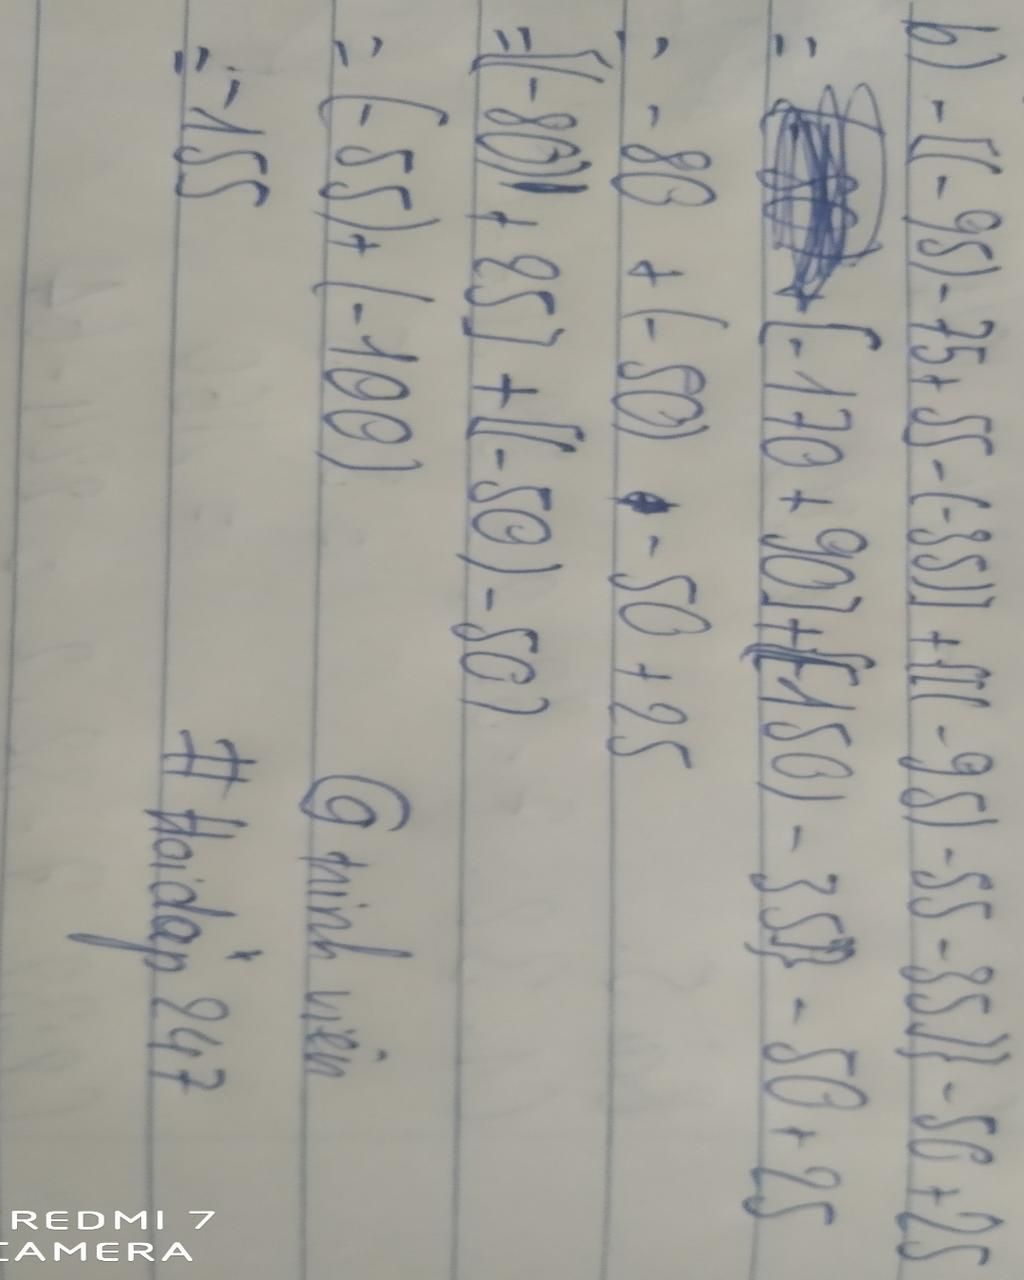 b) -[(-95)-75+55-(-35)] +{[(-95)-55-35]}-50+25
= [-170+90]+{[-150)-35]}-50+25
= -80+(-50)-50+25
=[(-80)+25]+[(-50)-50]
= (-55)+(-100)
= -155
G thinh viên
# Hoidap 247
REDMI 7
CAMERA